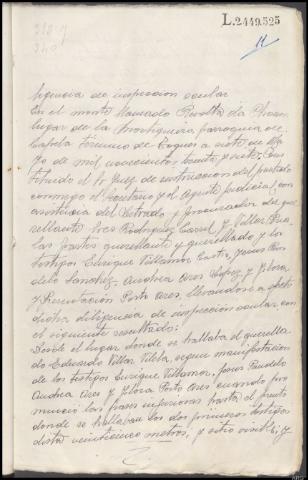 L.2449.525
11
ligencia de inspeccion ocular
En el monte llamado Revolta da
lugar de la Mortigueira parroquia de
Capela Termino de Toques a siete de Ma
yo de mil novecientos treinta y siete. Cons
tituido el Sr Juez de instruccion del partido
conmigo el Secretario y el Agente judicial con
asistencia del Letrado y Procurador del que
rellante Sres Rodriguez y Villar
las partes querellante y querellado y los
testigos Enrique Villamor Castro, Jesus Pan
delo Sanchez, Andrea Ares Lopez, y Flora
y Presentación Porto Ares, llevandose a efecto
dicha diligencia de inspección ocular con
el siguiente resultado:
Desde el lugar donde se hallaba el querella
do Eduardo Villar Vilela, segun manifestacion
de los testigos Enrique Villamor, Jesus Pandelo
Andrea Ares y Flora Porto Ares cuando pro
nunció las frases injuriosas hasta el punto
donde se hallaban los dos primeros testigos
dista veinticinco metros, y sitio visible, y